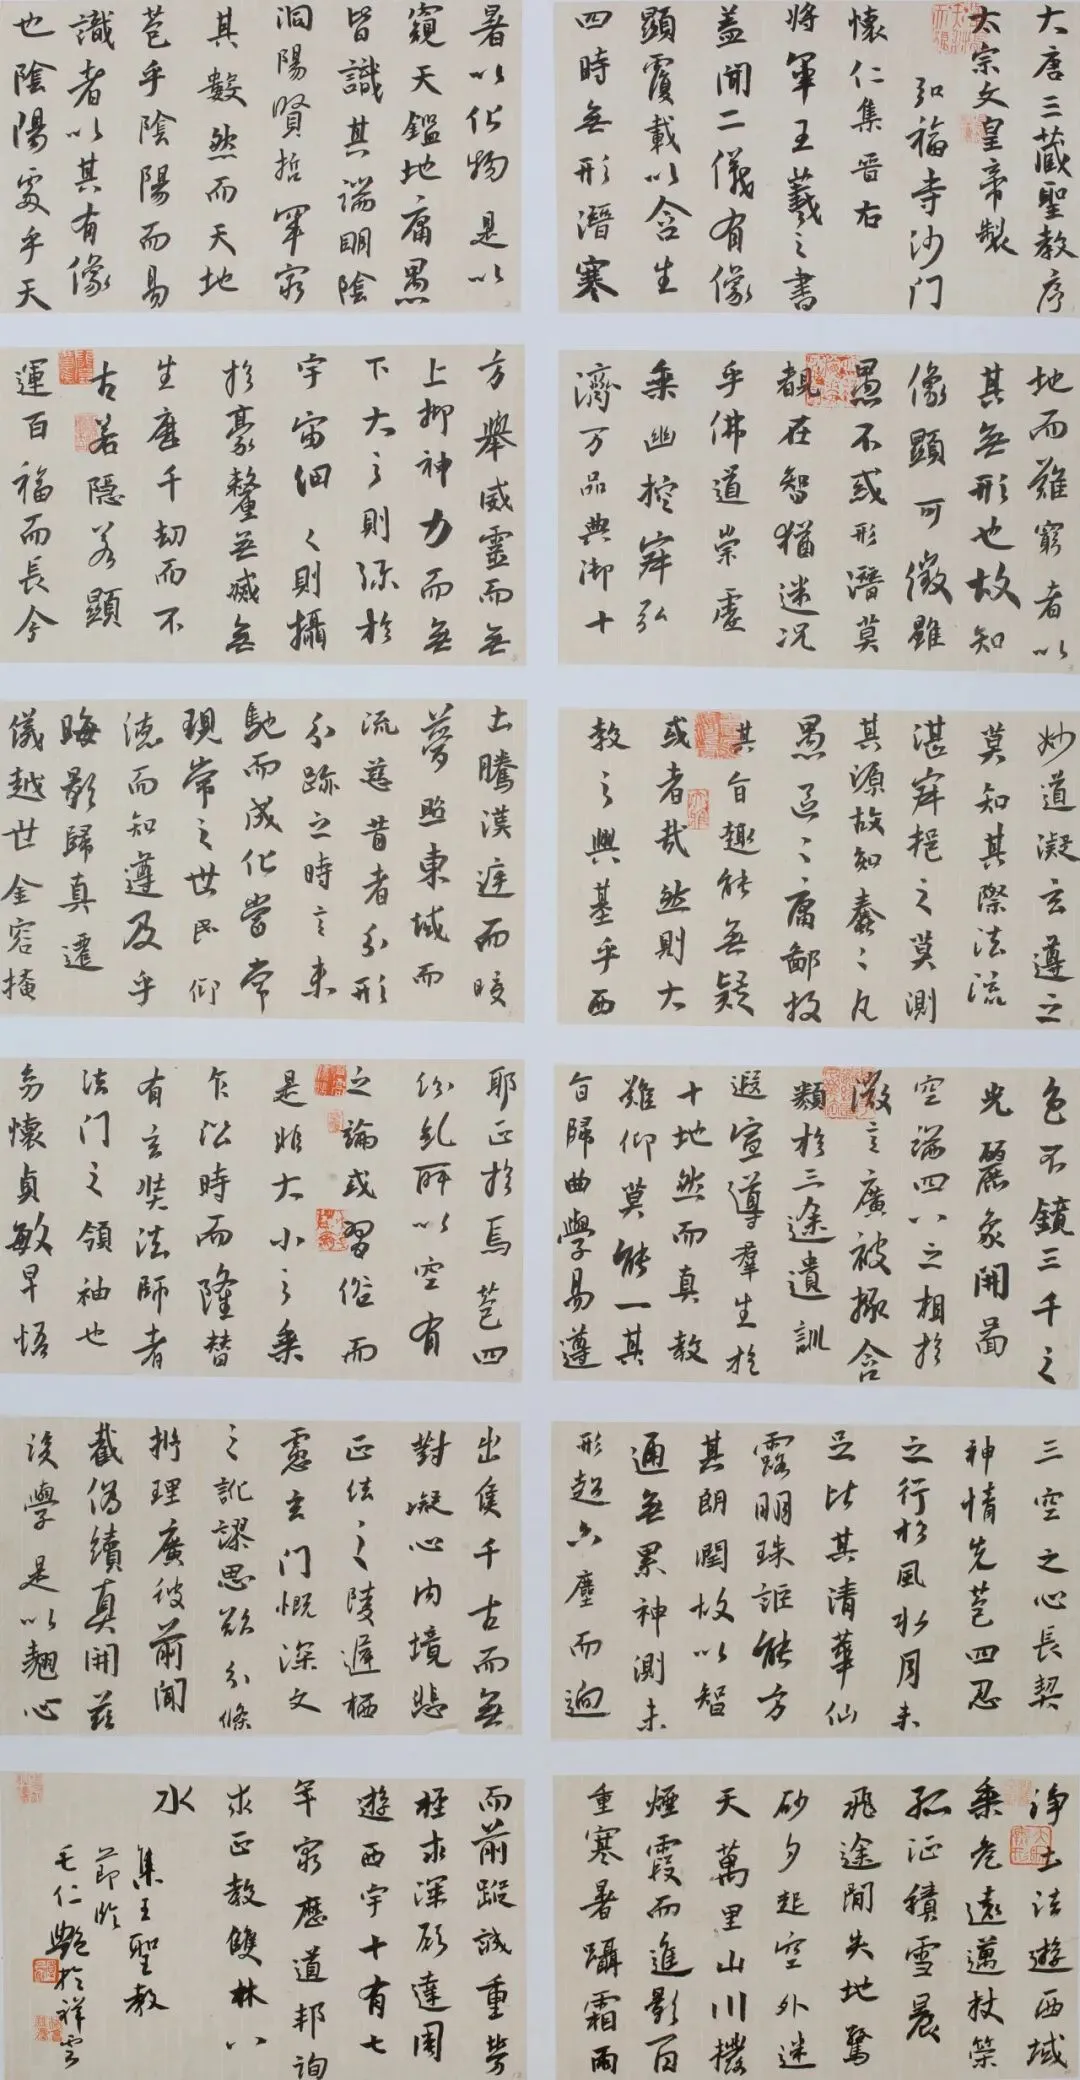 大唐三藏聖教序
太宗文皇帝製
弘福寺沙门
懷仁集晋右
将軍王羲之書
盖聞二儀有像
顯覆載以含生
四時無形潛寒
暑以化物是以
窺天鑑地庸愚
皆識其端明陰
洞陽賢哲罕窮
其數然而天地
苞乎陰陽而易
識者以其有像
也陰陽處乎天
地而難窮者以
其無形也故知
像顯可徵雖
愚不惑形潛莫
覩在智猶迷况
乎佛道崇虛
乘幽控寂弘
濟万品典御十
方舉威靈而無
上抑神力而無
下大之則弥於
宇宙細々則攝
於豪釐無滅無
生歷千劫而不
古若隱若顯
運百福而長今
妙道凝玄遵之
莫知其際法流
湛寂挹之莫測
其源故知蠢々凡
愚區々庸鄙投
其旨趣能無疑
或者哉然則大
教之興基乎西
土騰漢庭而皎
夢照東域而
流慈昔者分形
分跡之時言未
馳而成化當常
現常之世民仰
德而知遵及乎
晦影歸真遷
儀越世金容掩
色不鏡三千之
光麗象開啚
空端四八之相於
微言廣被拯含
類於三途遺訓
遐宣導羣生於
十地然而真教
難仰莫能一其
旨歸曲學易遵
耶正於焉苞四
紛糺所以空有
之論或習俗而
是非大小之乘
乍沿時而隆替
有玄奘法師者
法门之領袖也
幼懷貞敏早悟
三空之心長契
神情先苞四忍
之行松風水月未
足比其清華仙
露明珠詎能方
其朗潤故以智
通無累神測未
形超六塵而迥
出隻千古而無
對凝心內境悲
正法之陵遲栖
慮玄门慨深文
之訛謬思欲分條
析理廣彼前聞
截偽續真開茲
後學是以翹心
淨土法遊西域
乘危遠邁杖策
孤征積雪晨
飛途閒失地驚
砂夕起空外迷
天萬里山川撥
煙霞而進影百
重寒暑躡霜雨
而前蹤誠重勞
輕求深願達周
遊西宇十有七
年窮歷道邦詢
求正教雙林八
水
集王聖教
節临
毛仁艷於祥雲